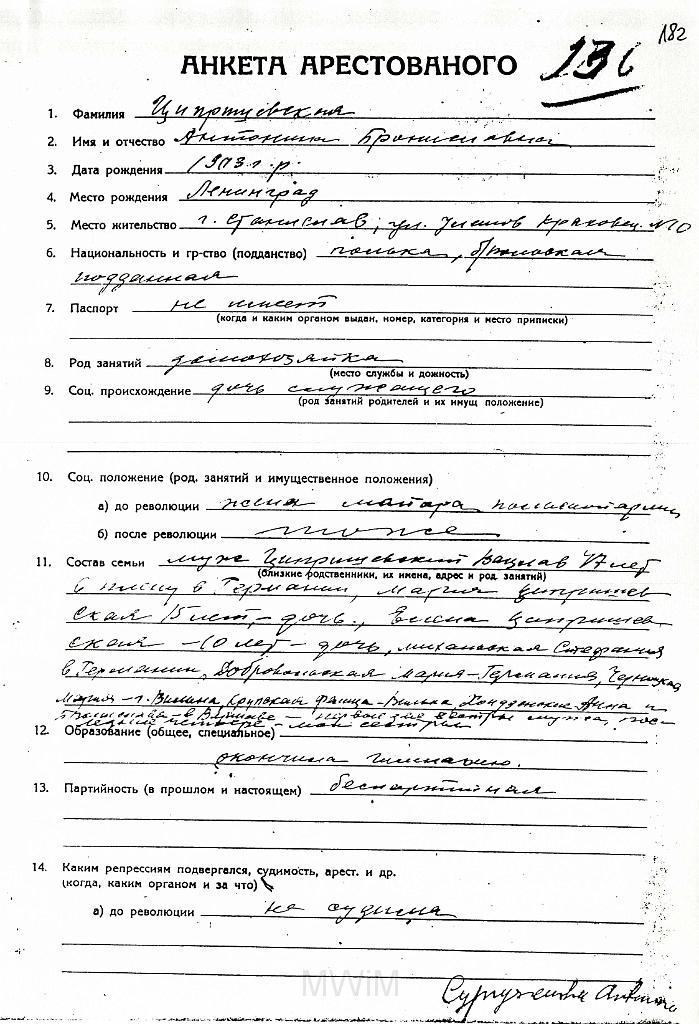 182
136
АНКЕТА АРЕСТОВАНОГО
1. Фамилия Ципришевская
2. Имя и отчество Антонина Брониславна
3. Дата рождения 1903 г. р.
4. Место рождения Ленинград
5. Место жительство г. Станислав, ул.
6. Национальность и гр-ство (подданство) полька,
подданная
7. Паспорт не имеет
(когда и каким органом выдан, номер, категория и место приписки)
8. Род занятий домохозяйка
(место службы и дожность)
9. Соц. происхождение дочь служащего
(род занятий родителей и их имущ положение)
10. Соц. положение (род. занятий и имущественное положения)
а) до революции жена майора польской армии
б) после революции тоже
11. Состав семьи муж Ципришевский Вацлав 47 лет
(близкие родственники, их имена, адрес и род. занятий)
в плену в Германии, Мария Ципришев
ская 15 лет – дочь, Елена Ципришев
ская – 10 лет – дочь, Михановская Стефания
в Германии, Добровольская Мария – Германия,
Мария – г. Вильна Крупская Вильна Анна и
в Варшаве – первые две сестры мужа,
мои сестры
12. Образование (общее, специальное)
окончила гимназию.
13. Партийность (в прошлом и настоящем) беспартийная
14. Каким репрессиям подвергался, судимость, арест. и др.
(когда, каким органом и за что)
а) до революции не судима
MWiM